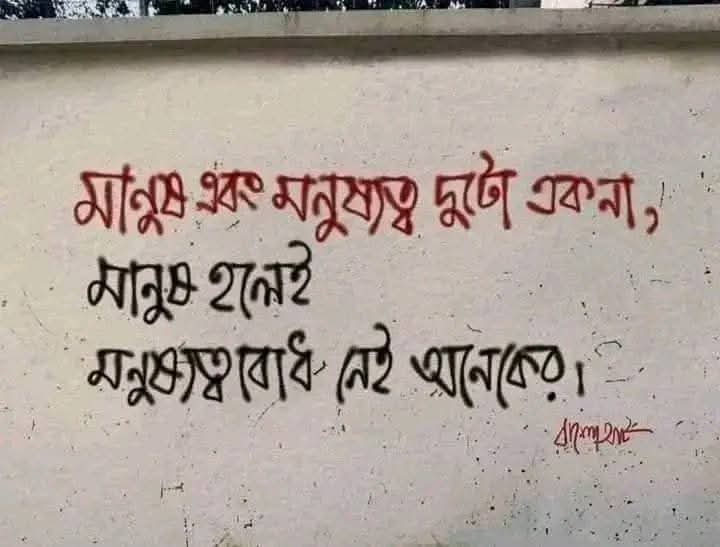 মানুষ এবং মনুষ্যত্ব দুটো এক না,
মানুষ হলেই
মনুষ্যত্ববোধ নেই অনেকের।